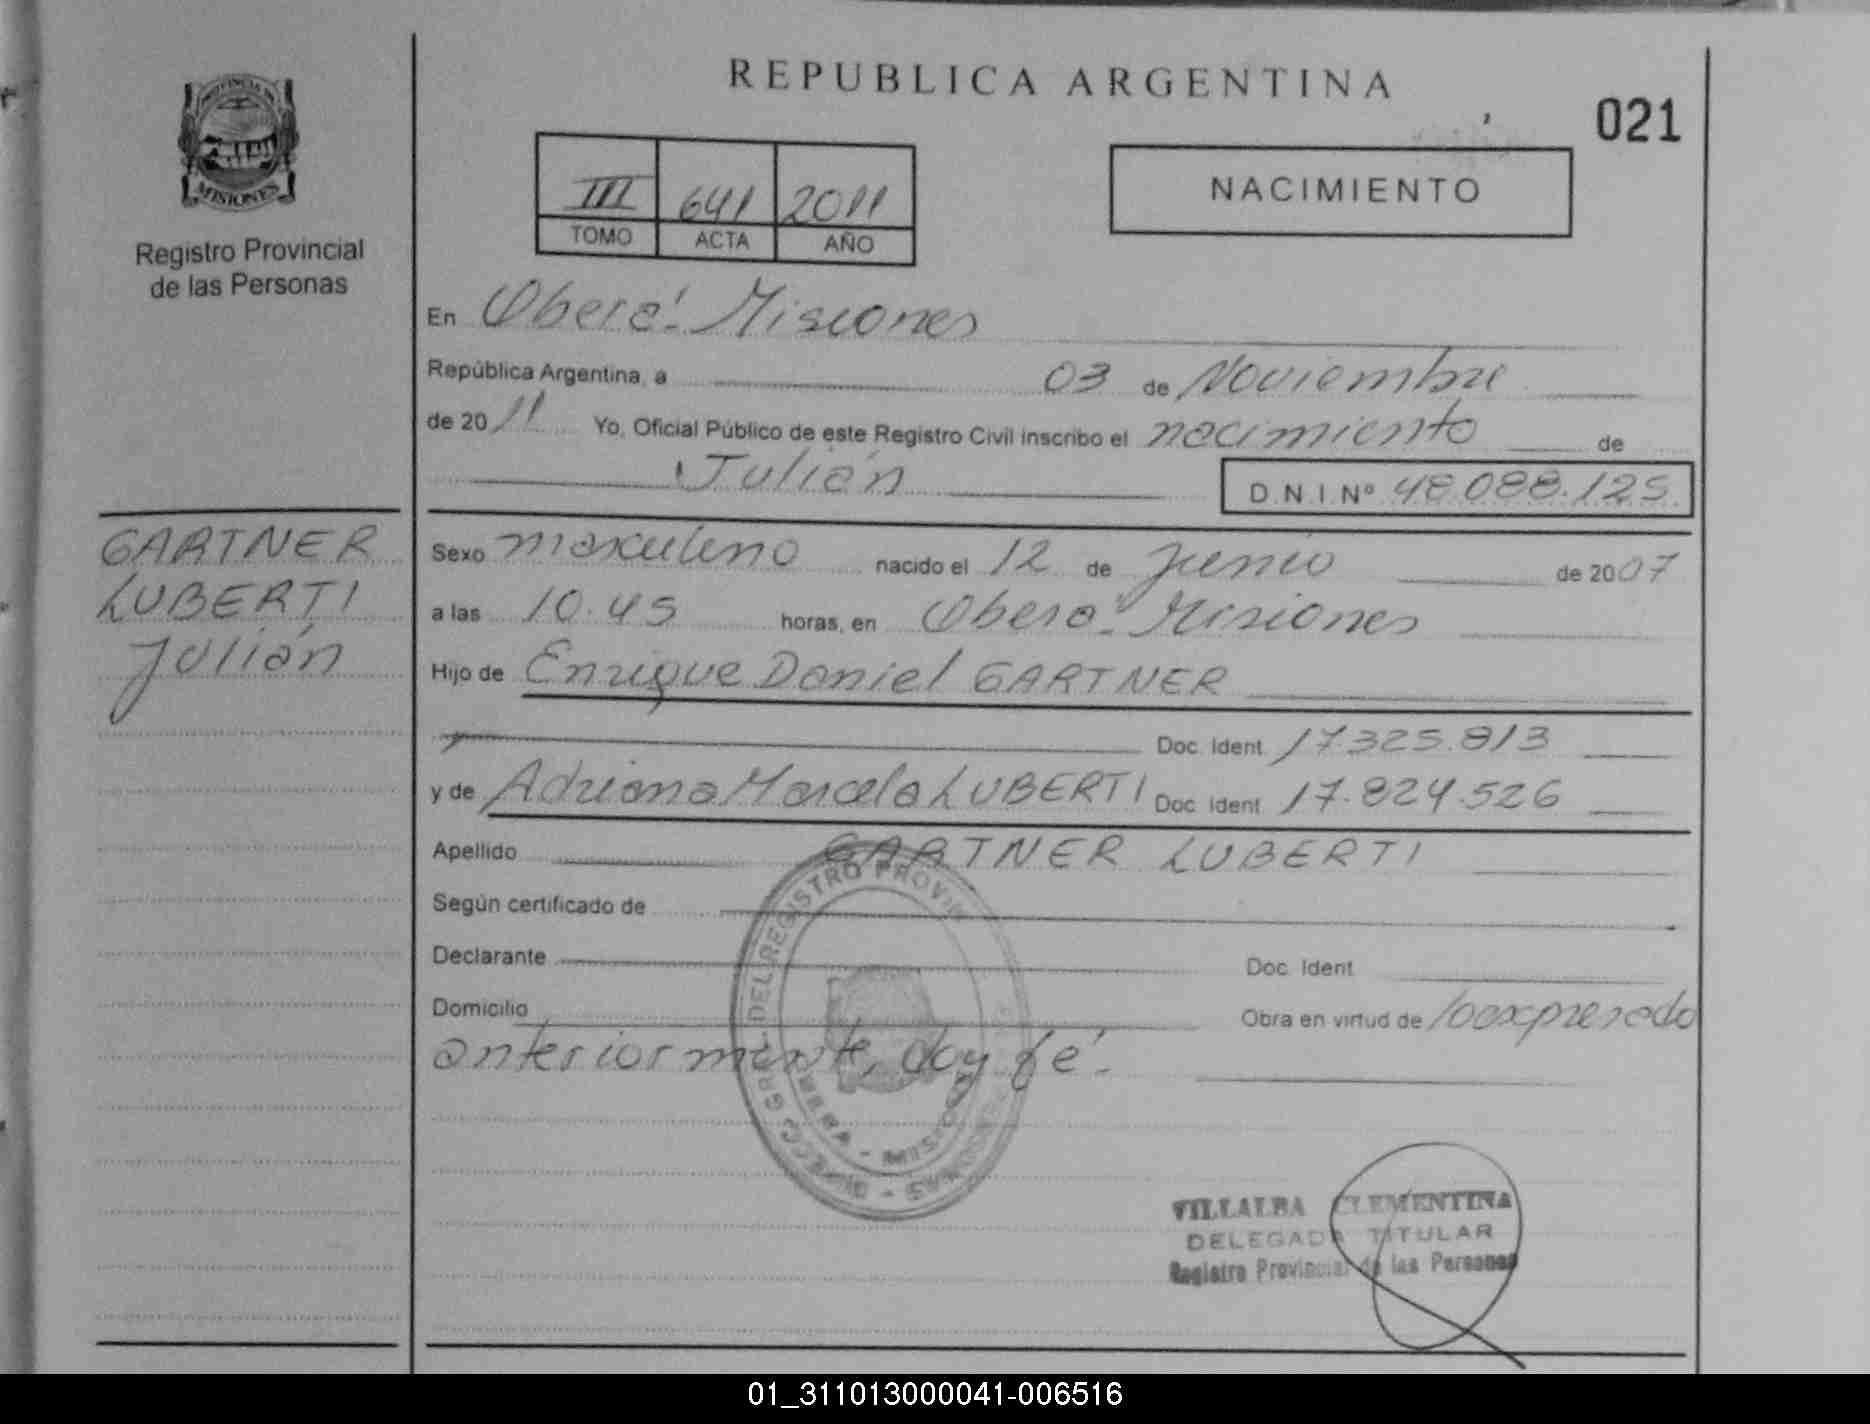 REPUBLICA ARGENTINA
021
PROVINCIA DE
MISIONES
Registro Provincial
de las Personas
III 641 2011
TOMO ACTA AÑO
NACIMIENTO
En Oberá - Misiones
República Argentina, a 03 de Noviembre
de 2011 Yo, Oficial Público de este Registro Civil inscribo el nacimiento de
Julián D.N.I. Nº 48.088.125
GARTNER
LUBERTI
Julián
Sexo masculino nacido el 12 de junio de 2007
a las 10.45 horas, en Oberá - Misiones
Hijo de Enrique Daniel GARTNER
Doc. Ident. 17.325.813
y de Adriana Marcela LUBERTI Doc. Ident. 17.824.526
Apellido GARTNER LUBERTI
Según certificado de
Declarante Doc. Ident.
Domicilio Obra en virtud de lo expresado
anteriormente, doy fé.-
VILLALBA CLEMENTINA
DELEGADA TITULAR
Registro Provincial de las Personas
01_311013000041-006516